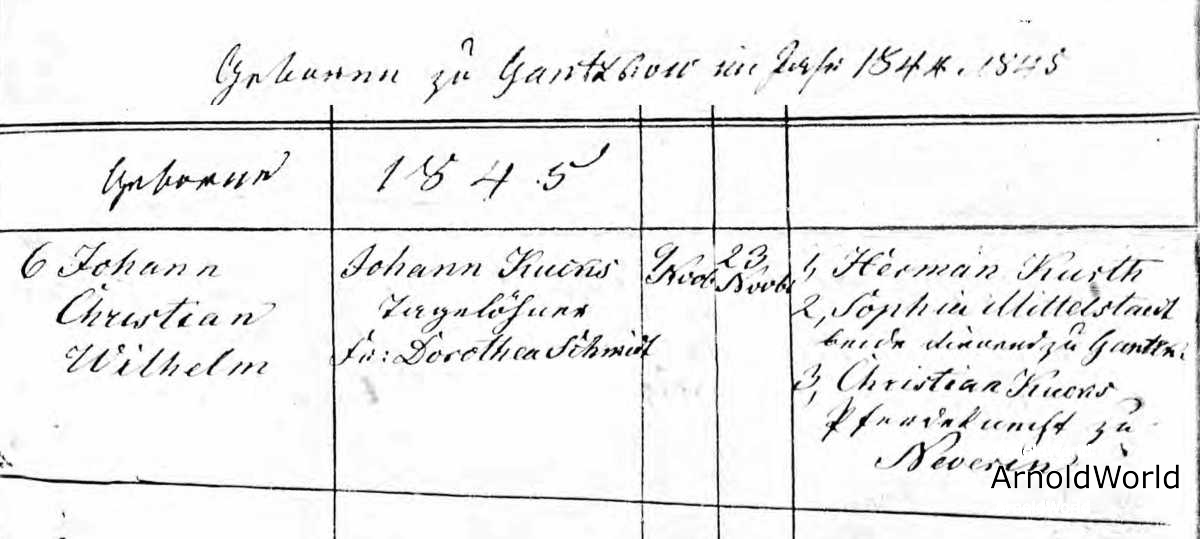 Geboren zu Gantzkow im Jahr 1844. 1845
Geborne 1845
6 Johann
Christian
Wilhelm
Johann Kucks
Tagelöhner
Fr: Dorothea Schmidt
9
Novb
23
Novbr
1, Herman Kurth
2, Sophia Mittelstädt
beide dienend zu Gantzk:
3, Christian Kucks
Pferdeknecht zu
Neverin
ArnoldWorld